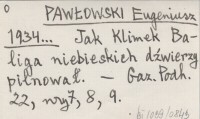 PAWŁOWSKI Eugeniusz
1934... Jak Klimek Ba-
liga niebieskich dźwierzy
pilnował. — Gaz. Podh.
22, nry 7, 8, 9.